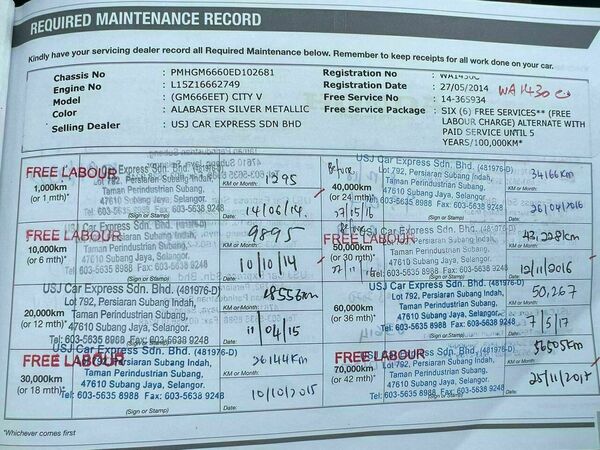 REQUIRED MAINTENANCE RECORD
Kindly have your servicing dealer record all Required Maintenance below. Remember to keep receipts for all work done on your car.
Chassis No : PMHGM6660ED102681
Engine No : L15Z16662749
Model : (GM666EET) CITY V
Color : ALABASTER SILVER METALLIC
Selling Dealer : USJ CAR EXPRESS SDN BHD
Registration No : WA1430C WA1430C
Registration Date : 27/05/2014
Free Service No : 14-365934
Free Service Package : SIX (6) FREE SERVICES** (FREE
LABOUR CHARGE) ALTERNATE WITH
PAID SERVICE UNTIL 5
YEARS/100,000KM*
FREE LABOUR
1,000km
(or 1 mth)*
USJ Car Express Sdn. Bhd. (481976-D)
Lot 792, Persiaran Subang Indah,
Taman Perindustrian Subang,
47610 Subang Jaya, Selangor.
Tel: 603-5635 8988 Fax: 603-5638 9248
(Sign or Stamp)
KM or Month: 1295
Date: 14/06/14
FREE LABOUR
10,000km
(or 6 mth)*
USJ Car Express Sdn. Bhd. (481976-D)
Lot 792, Persiaran Subang Indah,
Taman Perindustrian Subang,
47610 Subang Jaya, Selangor.
Tel: 603-5635 8988 Fax: 603-5638 9248
(Sign or Stamp)
KM or Month: 9895
Date: 10/10/14
20,000km
(or 12 mth)*
USJ Car Express Sdn. Bhd. (481976-D)
Lot 792, Persiaran Subang Indah,
Taman Perindustrian Subang,
47610 Subang Jaya, Selangor.
Tel: 603-5635 8988 Fax: 603-5638 9248
KM or Month:
Date: 11/04/15
FREE LABOUR
30,000km
(or 18 mth)*
USJ Car Express Sdn. Bhd. (481976-D)
Lot 792, Persiaran Subang Indah,
Taman Perindustrian Subang,
47610 Subang Jaya, Selangor.
Tel: 603-5635 8988 Fax: 603-5638 9248
(Sign or Stamp)
KM or Month: 26144km
Date: 10/10/2015
Before
40,000km
(or 24 mth)*
USJ Car Express Sdn. Bhd. (481976-D)
Lot 792, Persiaran Subang Indah,
Taman Perindustrian Subang,
47610 Subang Jaya, Selangor.
Tel: 603-5635 8988 Fax: 603-5638 9248
(Sign or Stamp)
KM or Month: 34166km
Date: 26/04/2016
FREE LABOUR
50,000km
(or 30 mth)*
USJ Car Express Sdn. Bhd. (481976-D)
Lot 792, Persiaran Subang Indah,
Taman Perindustrian Subang,
47610 Subang Jaya, Selangor.
Tel: 603-5635 8988 Fax: 603-5638 9248
KM or Month: 43,228km
Date: 12/11/2016
60,000km
(or 36 mth)*
USJ Car Express Sdn. Bhd. (481976-D)
Lot 792, Persiaran Subang Indah,
Taman Perindustrian Subang,
47610 Subang Jaya, Selangor.
Tel: 603-5635 8988 Fax: 603-5638 9248
KM or Month: 50,267
Date: 7/5/17
FREE LABOUR
70,000km
(or 42 mth)*
USJ Car Express Sdn. Bhd. (481976-D)
Lot 792, Persiaran Subang Indah,
Taman Perindustrian Subang,
47610 Subang Jaya, Selangor.
Tel: 603-5635 8988 Fax: 603-5638 9248
(Sign or Stamp)
KM or Month: 56505km
Date: 25/11/2017
*Whichever comes first